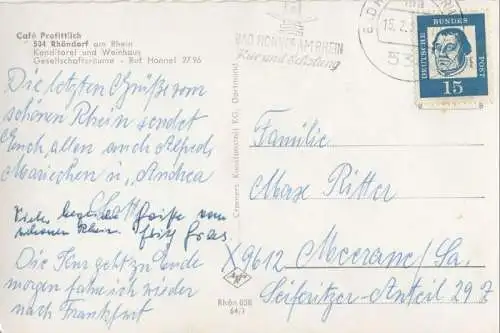 Café Profittlich
534 Rhöndorf am Rhein
Konditorei und Weinhaus
Gesellschaftsräume - Bad Honnef 2796
Die letzten Grüße vom
schönen Rhein sendet
Euch, allen auch Alfred,
Mariechen u. Andrea
Viele herzliche Grüße vom
schönen Rhein. Fritz
Die Tour geht zu Ende
morgen fahre ich wieder
nach Frankfurt
Cramers Kunstanstalt KG, Dortmund
Rhön 808
64/1
BAD HONNEF AM RHEIN
Kur und Erholung
15.2.
53
DEUTSCHE
BUNDES
POST
15
Familie
Max Ritter
9612 Meerane/Sa.
Seiferitzer-Anteil 29